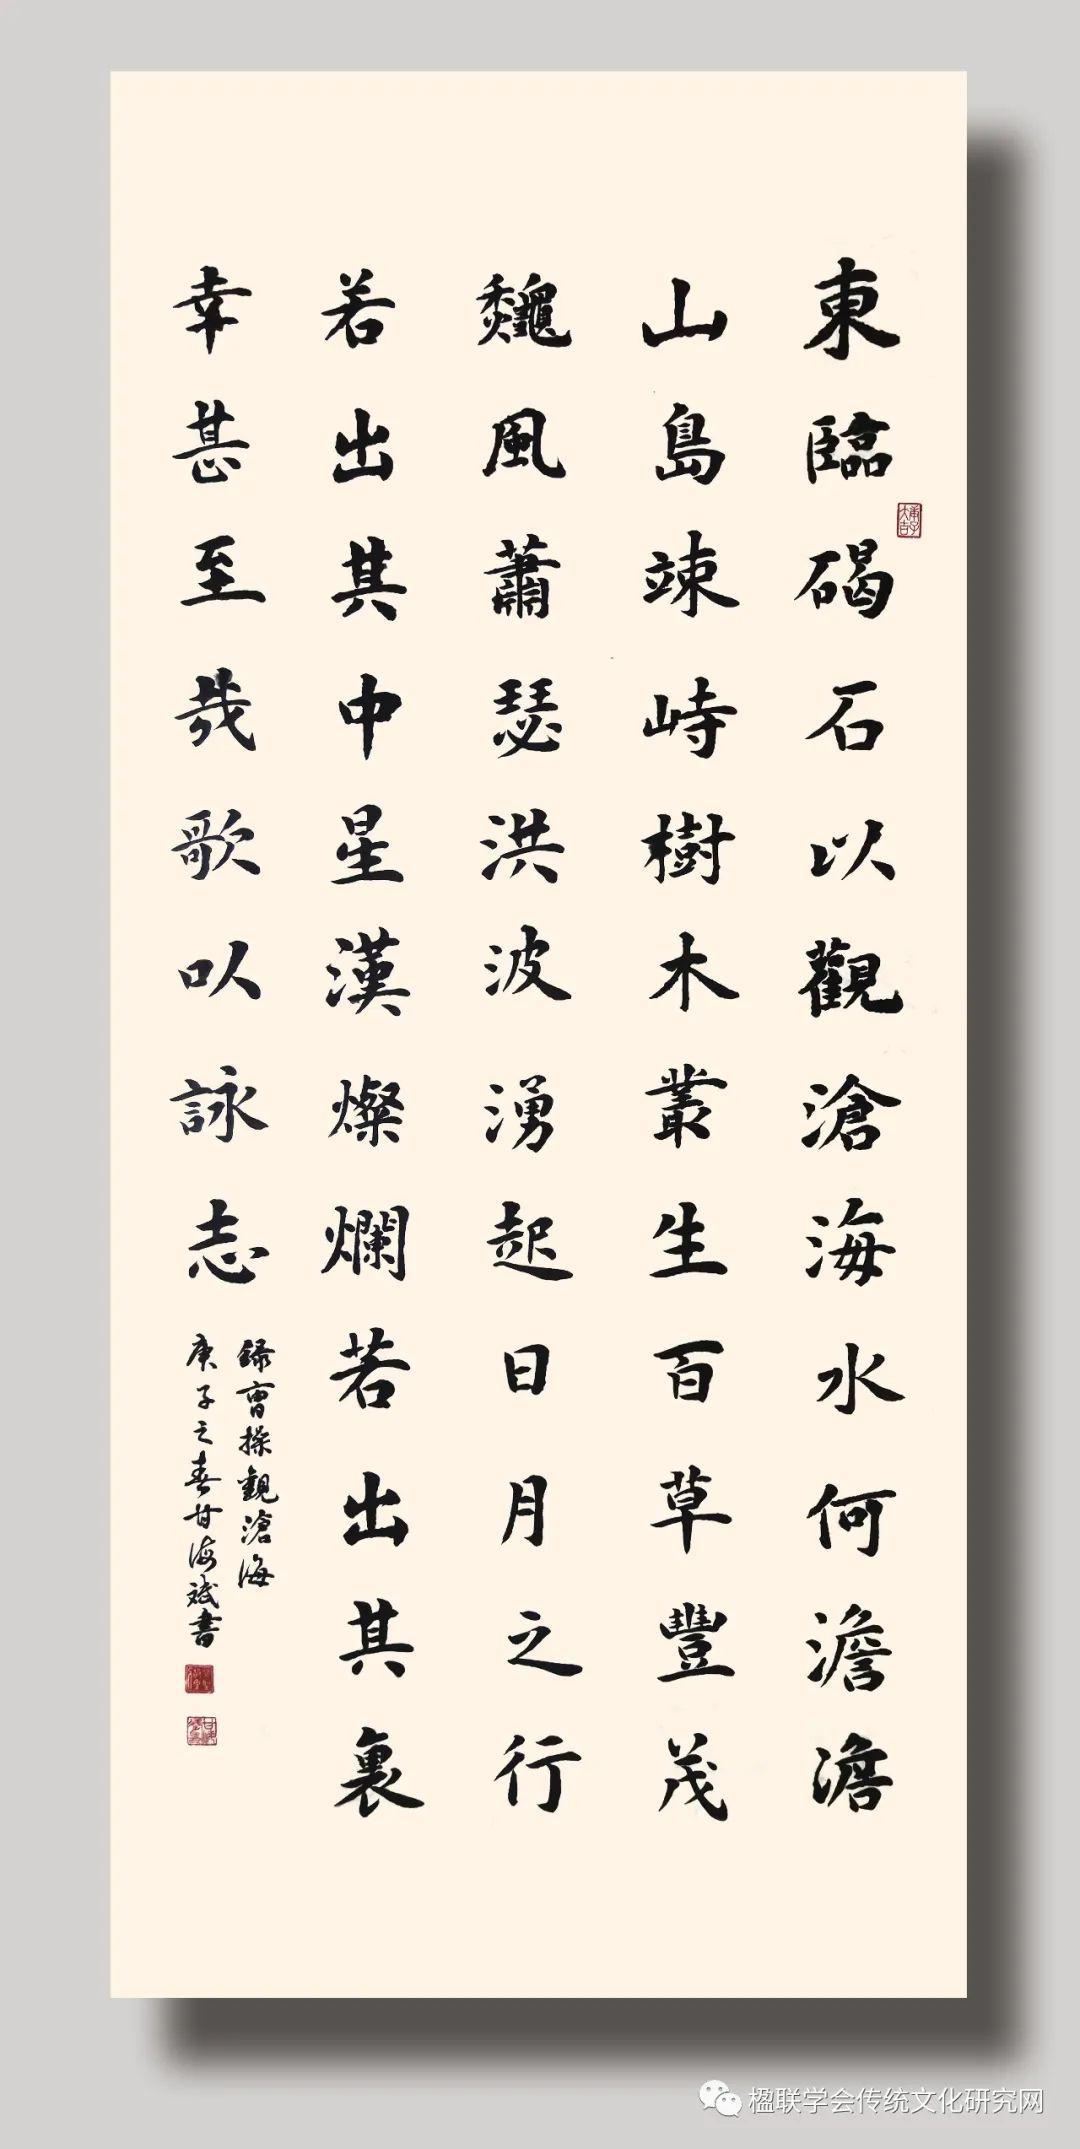 東臨碣石以觀滄海水何澹澹
山島竦峙樹木叢生百草豐茂
龝風蕭瑟洪波湧起日月之行
若出其中星漢燦爛若出其裏
幸甚至哉歌以詠志
録曹操觀滄海
庚子之春甘海斌書
楹联学会传统文化研究网